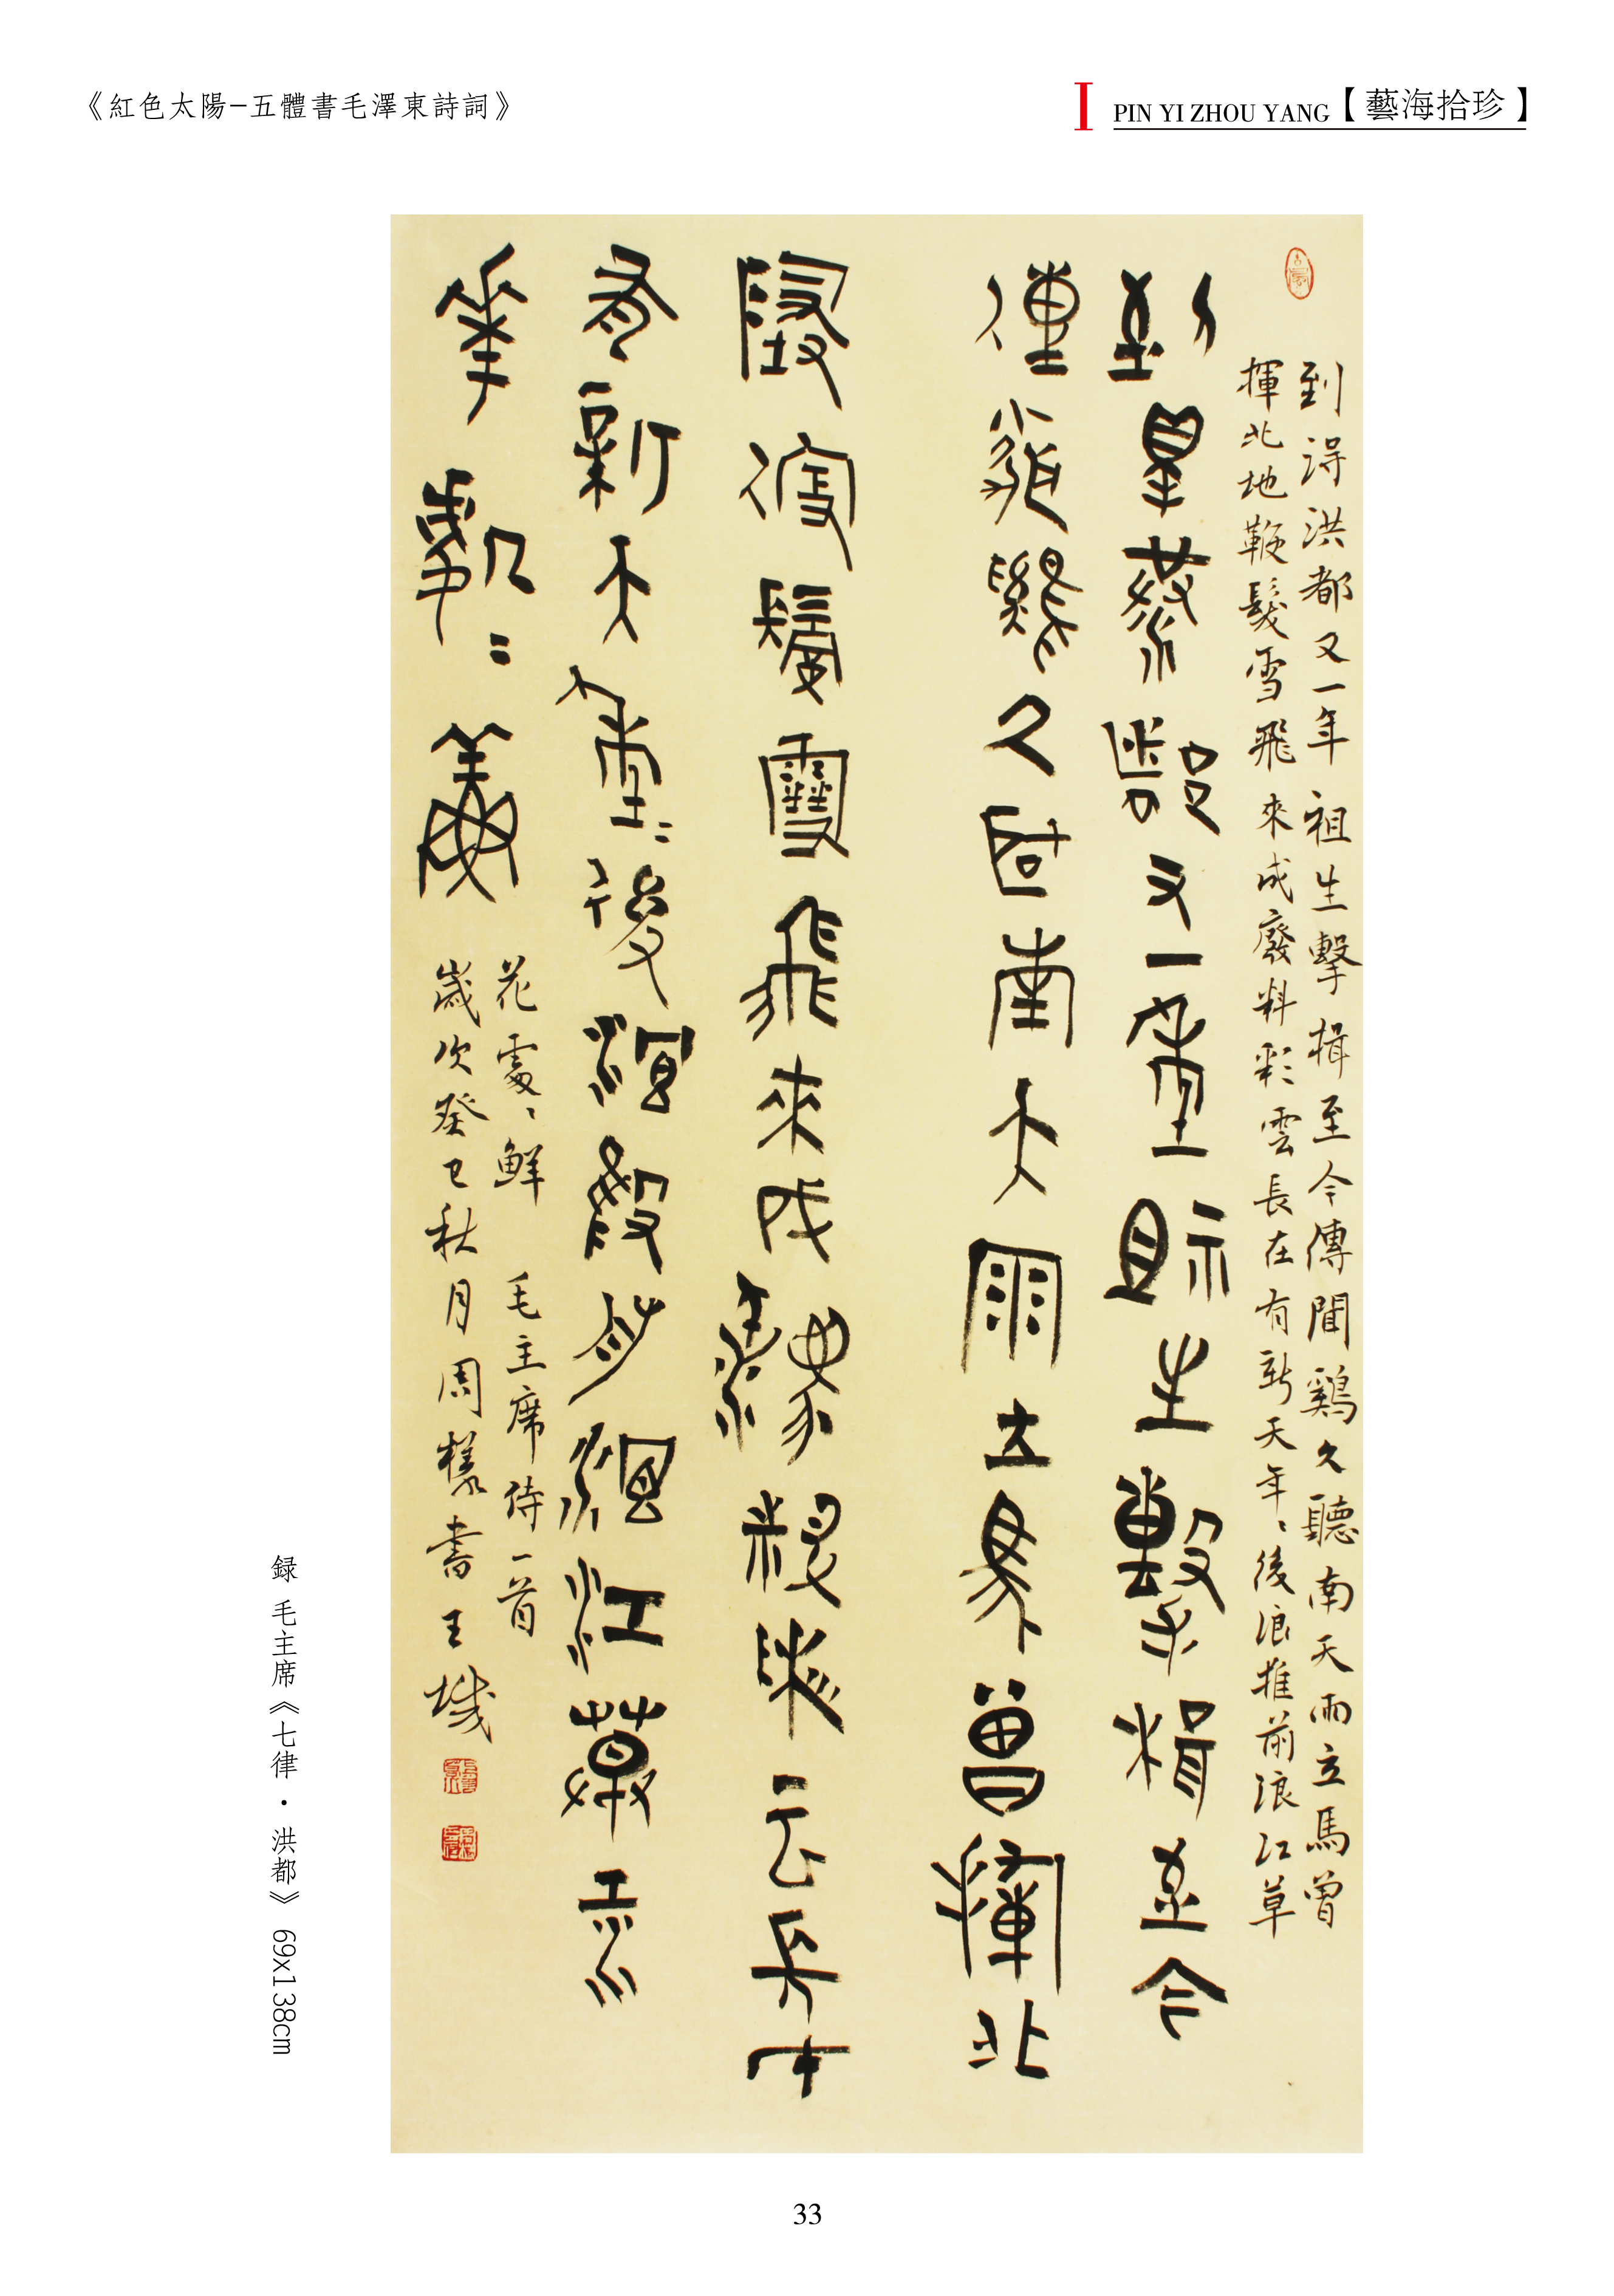 《紅色太陽-五體書毛澤東詩詞》
I PIN YI ZHOU YANG【藝海拾珍】
到淂洪都又一年祖生擊楫至今傳聞鷄久聽南天雨立馬曾
揮北地鞭鬓雪飛來成廢料彩雲長在有新天年〻後浪推前浪江草
到得洪都又一年祖生擊楫至今
傳聞鷄久聽南天雨立馬曾揮北
地鞭鬢雪飛來成廢料彩云長在
有新天年〻後浪推前浪江草江
華處〻鮮
花處〻鮮 毛主席诗一首
歲次癸巳秋月周樣書
録毛主席《七律·洪都》 69x138cm
33